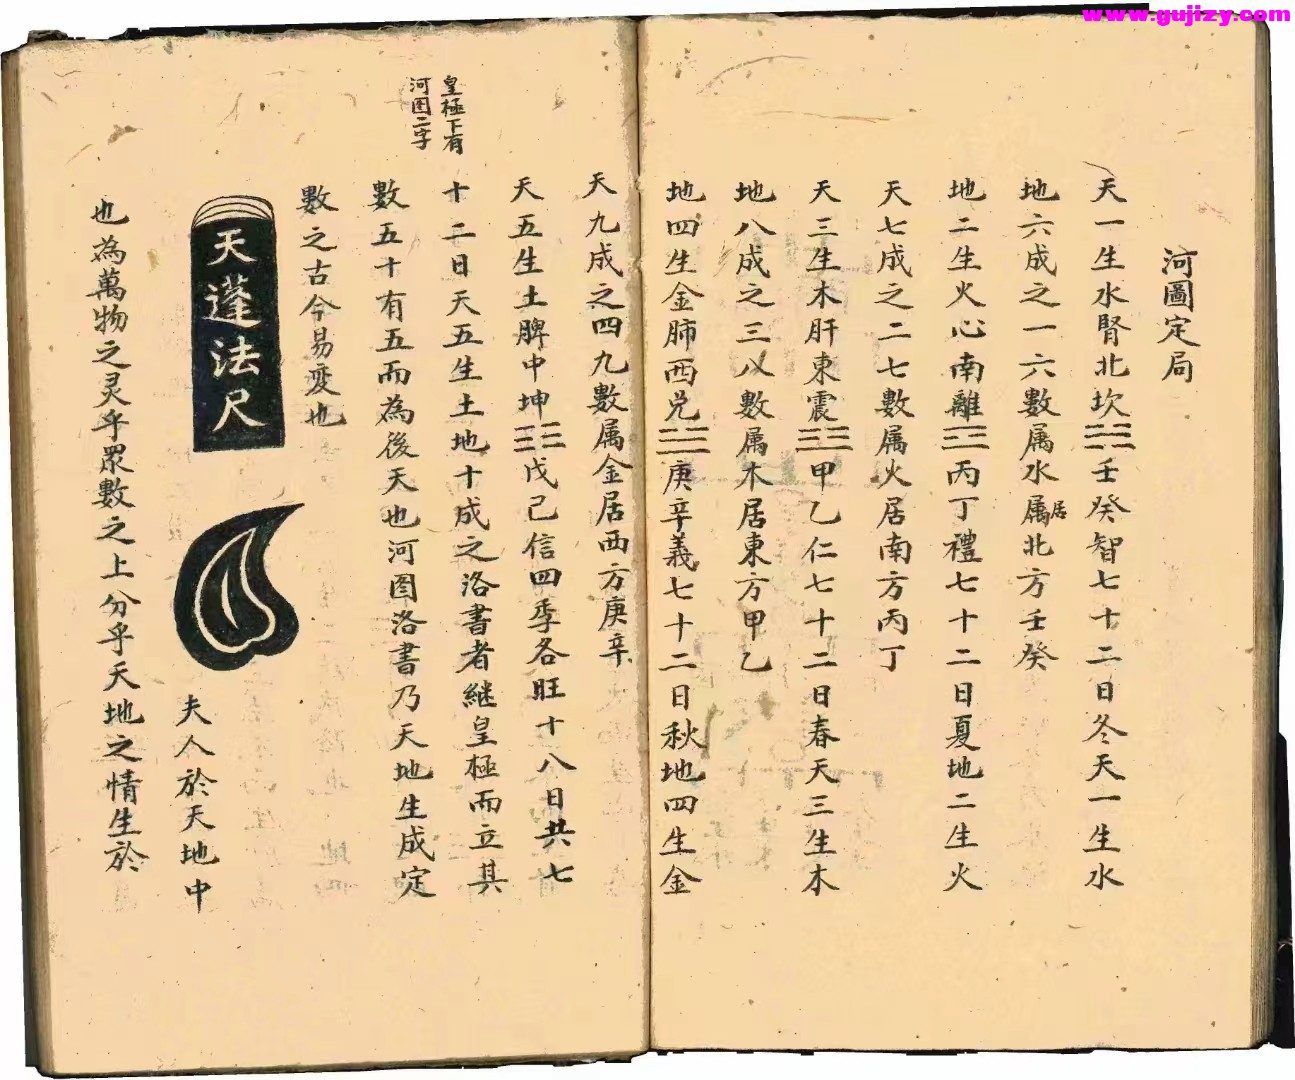 www.gujizy.com
河圖定局
天一生水腎北坎☵壬癸智七十二日冬天一生水
地六成之一六數属水属居北方壬癸
地二生火心南離☲丙丁禮七十二日夏地二生火
天七成之二七數属火居南方丙丁
天三生木肝東震☳甲乙仁七十二日春天三生木
地八成之三八數属木居東方甲乙
地四生金肺西兑☱庚辛義七十二日秋地四生金
天九成之四九數属金居西方庚辛
天五生土脾中坤☷戊己信四季各旺十八日共七
十二日天五生土地十成之洛書者継皇極而立其
皇極下有
河图二字
數五十有五而為後天也河图洛書乃天地生成定
數之古今易变也
天蓬法尺
夫人於天地中
也為萬物之灵乎眾數之上分乎天地之情生於